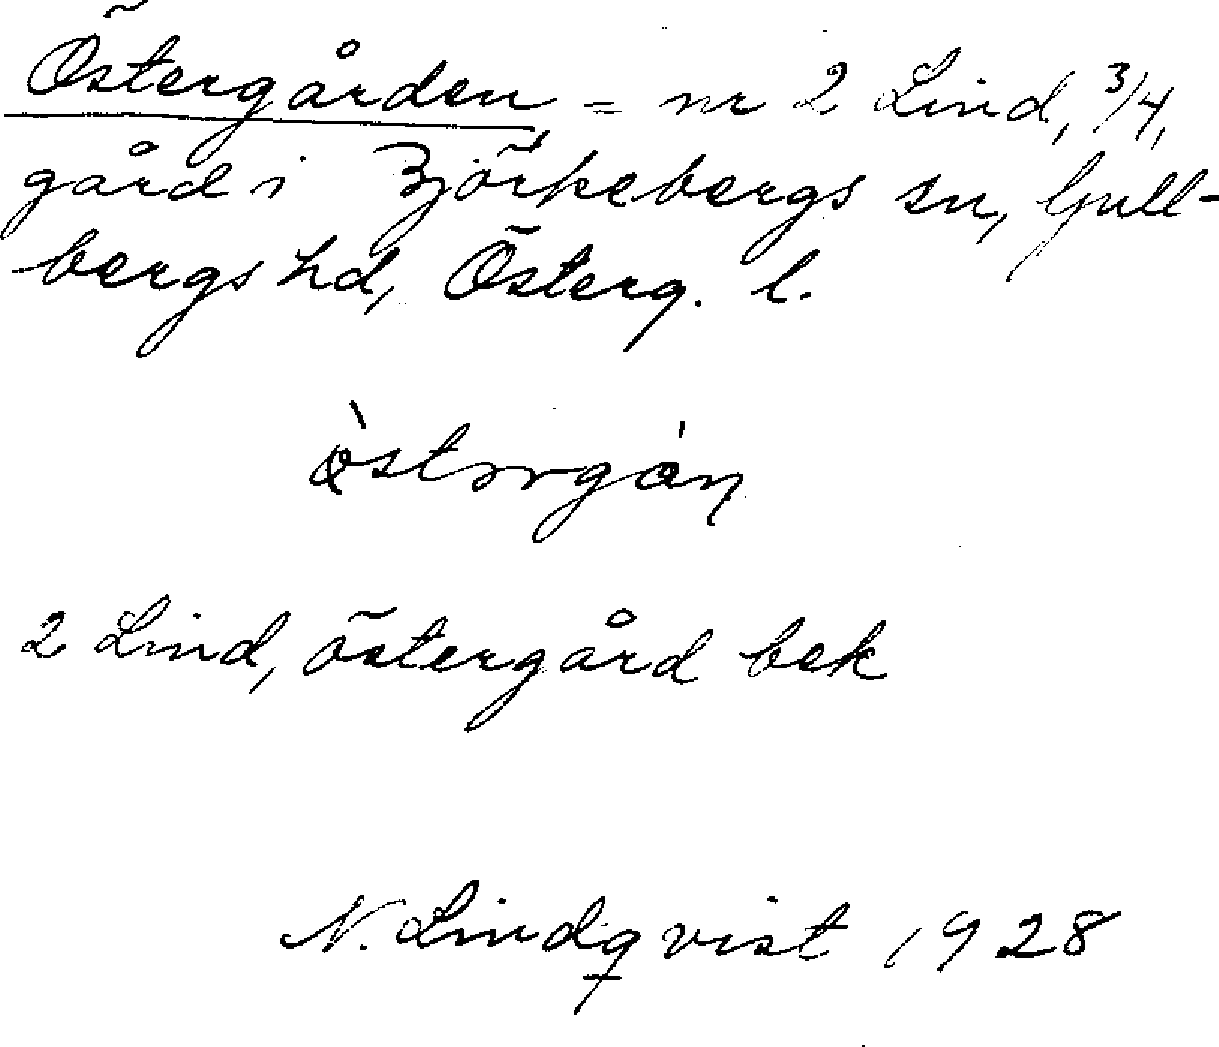 Östergården, = nr 2 Lind, 3/4,
gård i Björkebergs sn, Gull-
bergs hd, Österg. l.
2 Lind, östergård bek
N. Lindqvist 1928